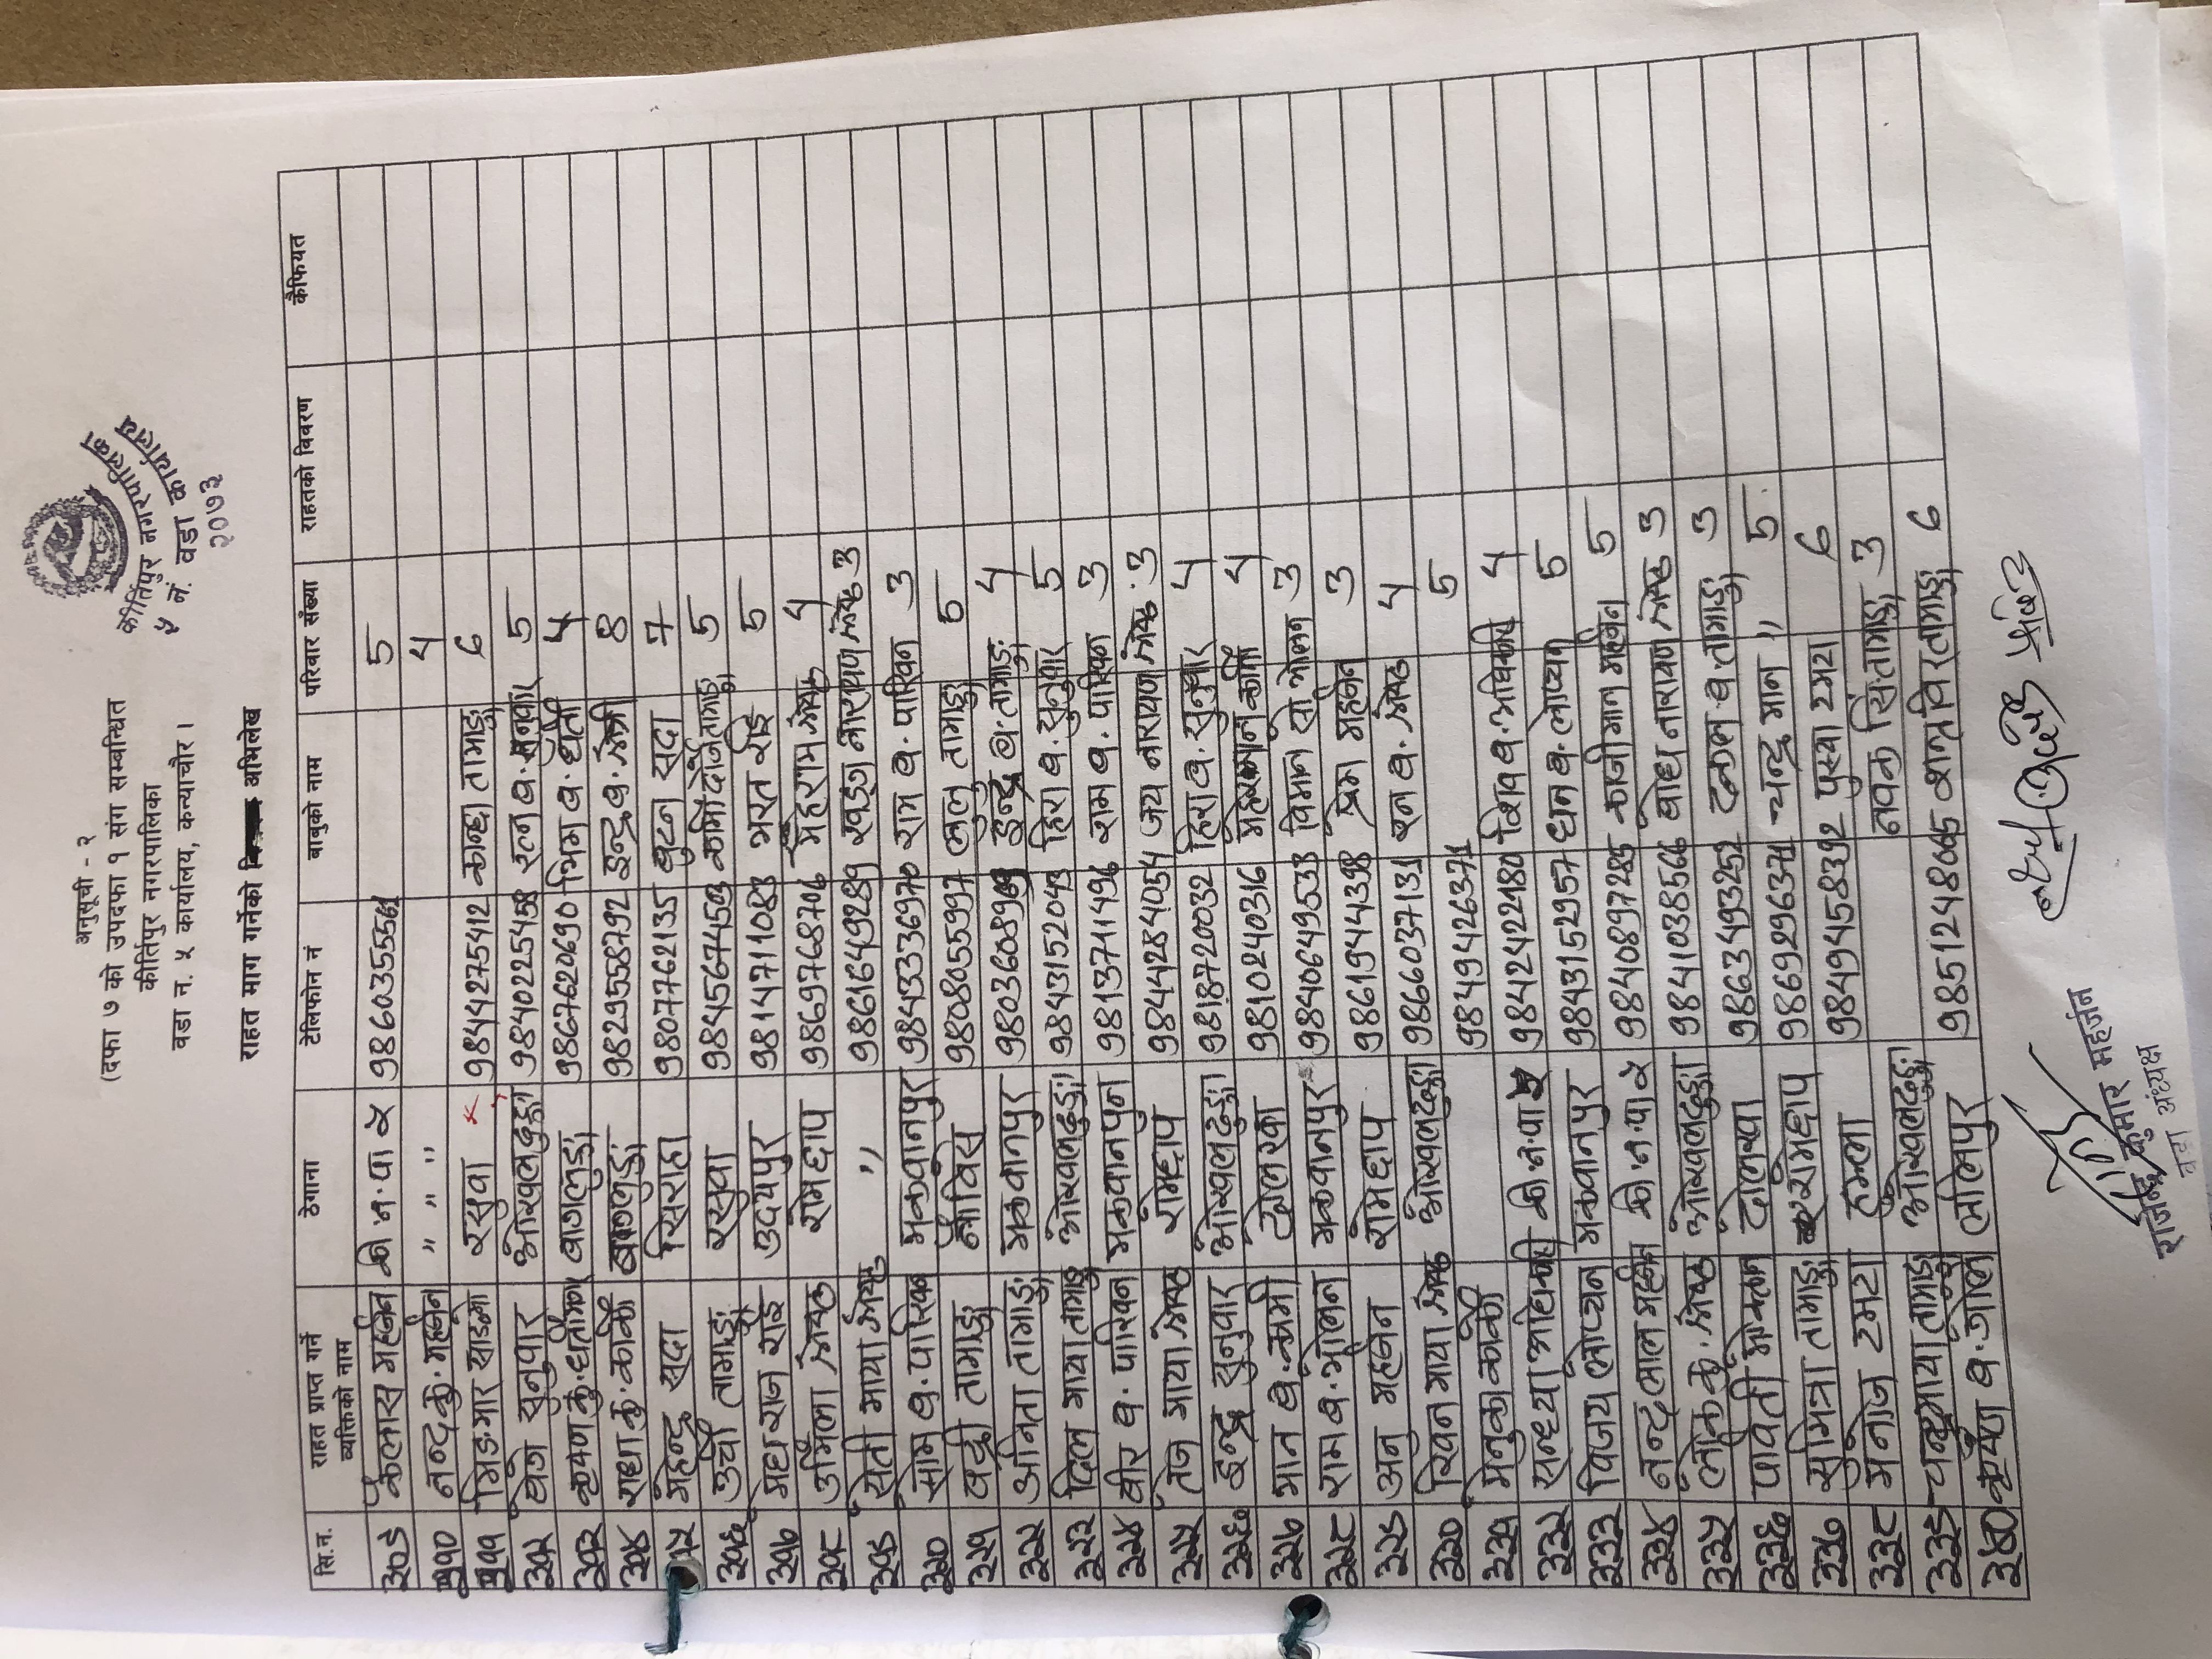 अनुसूची - २
(दफा ७ को उपदफा १ संग सम्बन्धित
कीर्तिपुर नगरपालिका
वडा न. ५ कार्यालय, कन्याचौर ।
कीर्तिपुर नगरपालिका
५ नं. वडा कार्यालय
२०७३
राहत माग गर्नेको अभिलेख
सि.न. राहत प्राप्त गर्ने व्यक्तिको नाम ठेगाना टेलिफोन नं बाबुको नाम परिवार संख्या राहतको विवरण कैफियत
३०९ कैलास महर्जन की न.पा ५ 9860355561 5
३१० नन्द कु. महर्जन " " " 4
३११ रसुवा 9844275412 कान्छा तामाङ्ग 6
३१२ वेग सुनुवार ओखलढुङ्गा 9840225458 रत्न ब. सुनुवार 5
३१३ कृष्ण कु. घर्तीमगर बागलुङ्ग 9867620690 भिम ब. घर्ती 4
३१४ राधा कु. कार्की बागलुङ्ग 9829558792 इन्द्र ब. क्षेत्री 8
३१५ महेन्द्र सदा सिराहा 9807762135 बुटन सदा 7
३१६ उर्ची तामाङ्ग रसुवा 9845674503 कार्मी दोर्जे तामाङ्ग 5
३१७ मेघ राज राइ उदयपुर 9814711083 भरत राई 5
३१८ उर्मिला श्रेष्ठ रामेछाप 9869768706 मोहराम श्रेष्ठ 4
३१९ सेती माया श्रेष्ठ " 9861649289 खड्ग नारायण श्रेष्ठ 3
३२० सोम ब. पाख्रिन मकवानपुर 9843336970 राम ब. पाख्रिन 3
३२१ वद्री तामाङ्ग 9808055997 लालु तामाङ्ग 5
३२२ अनिता तामाङ्ग मकवानपुर 9803608969 इन्द्र ब. तामाङ्ग 4
३२३ दिल माया तामाङ्ग ओखलढुङ्गा 9843152043 हिरा ब. सुनुवार 5
३२४ वीर ब. पाख्रिन मकवानपुर 9813741496 राम ब. पाख्रिन 3
३२५ तेज माया श्रेष्ठ रामेछाप 9844284054 जय नारायण श्रेष्ठ 3
३२६ इन्द्र सुनुवार ओखलढुङ्गा 9818720032 हिरा ब. सुनुवार 4
३२७ मान ब. कामी दोलखा 9810240316 मोहरमान कामी 4
३२८ राम ब. मोलन मकवानपुर 9840649533 विमान सिं मोलन 3
३२९ अन महर्जन रामेछाप 9861944398 प्रेम महर्जन 3
३३० रिवन माया श्रेष्ठ ओखलढुङ्गा 9866037131 रन ब. श्रेष्ठ 4
३३१ मेनुका कार्की 9849426371 5
३३२ सन्ध्या अधिकारी की.न.पा ५ 9842422180 शिव ब. अधिकारी 4
३३३ विजय लोप्चन मकवानपुर 9843152957 धन ब. लोप्चन 5
३३४ नन्द लाल महर्जन की.न.पा ५ 9840897285 काजीमान महर्जन 5
३३५ लोक कु. श्रेष्ठ ओखलढुङ्गा 9841038566 बोध नारायण श्रेष्ठ 3
३३६ पार्वती मोक्तान दोलखा 9863493252 ब. तामाङ्ग 3
३३७ सुमित्रा तामाङ्ग रामेछाप 9869296371 चन्द्र मान " 5
३३८ मनोज टमटा हुम्ला 9849458392 पुस्या टमटा 6
३३९ चन्द्रमाया तामाङ्ग ओखलढुङ्गा सिं तामाङ्ग 3
३४० कृष्ण ब. गोले ललितपुर 9851248065 विर तामाङ्ग 6
राजेन्द्र कुमार महर्जन
वडा अध्यक्ष